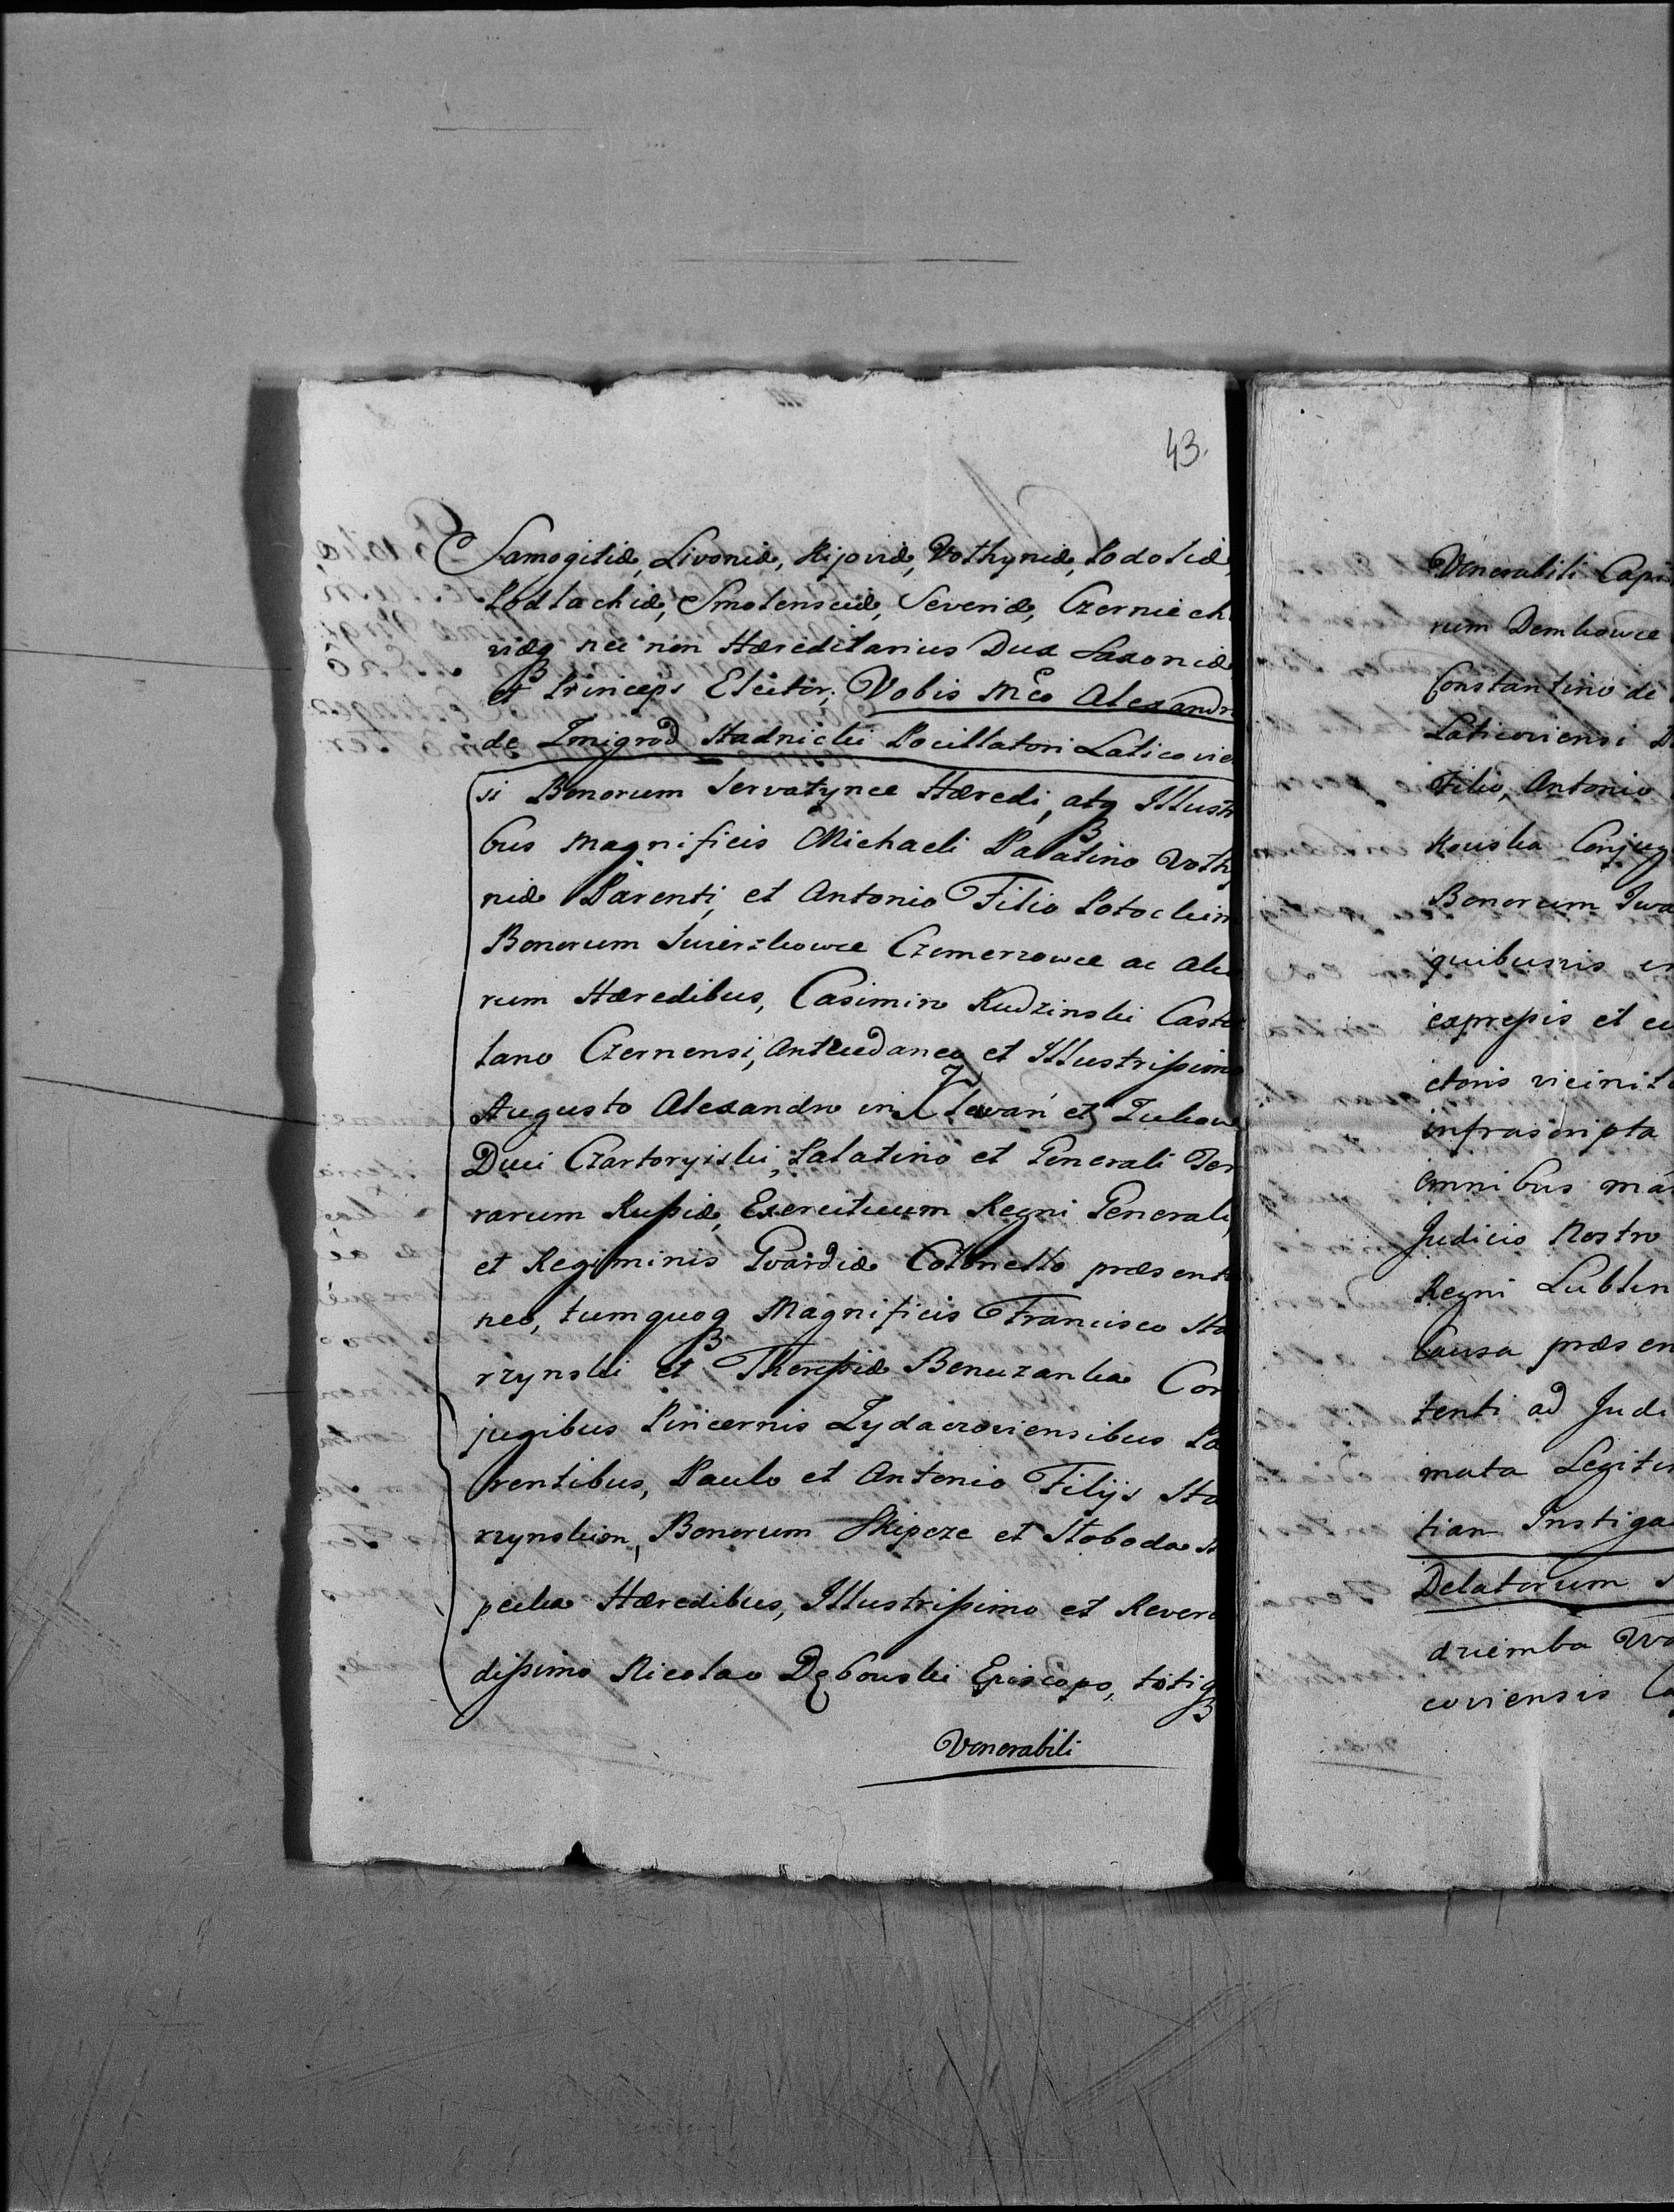 43.
Samogitiæ, Livoniæ, Kijoviæ, Volhyniæ, Podoliæ,
Podlachiæ, Smolensciæ, Severiæ, Czerniech
viæq nec non Hæreditarius Dux Saxoniæ
et Princeps Elector; Vobis Mco Alexandr
de Zmigrod Stadnicki Pocillatori Laticovie
si Bonorum Serwatynce Hæredi, atq Illustr
bus Magnificis Michaeli Palatino Volhy
niæ Parenti, et Antonio Filio Potockim
Bonorum Swierzkowce Czemerzowce ac Alio
rum Hæredibus, Casimiro Rudzinski Caste
lano Czernensi, Antecedaneo et Illustrissimo
Augusto Alexandro in Klewań et Zukow
Duci Czartoryiski, Palatino et Generali Ter
rarum Russiæ, Exercituum Regni Generali,
et Regiminis Gvardiæ Colonello præsenta
neo, tum quoq Magnificis Francisco Sta
rzynski et Theresiæ Benuzanka Con
jugibus Pincernis Zydaczoviensibus Pa
rentibus, Paulo et Antonio Filijs Sta
rzynskim, Bonorum Skipcze et Sloboda
pecka Hæredibus, Illustrissimo et Revere
dissimo Nicolao Dębowski Episcopo, totiq
Venerabili
Venerabili Capi
rum Dembowce
Constantino de
Laticoviensi D
Filio, Antonio
Kouska Conjug
Bonorum Iwa
quibusvis
expressis et
ctoris vicinit
infrascripta
omnibus ma
Judicio Nostro
Regni Lublin
Causa præsen
tenti ad Judi
mata Legitim
tian Instiga
Delatorum
dziemba
coviensis Ca